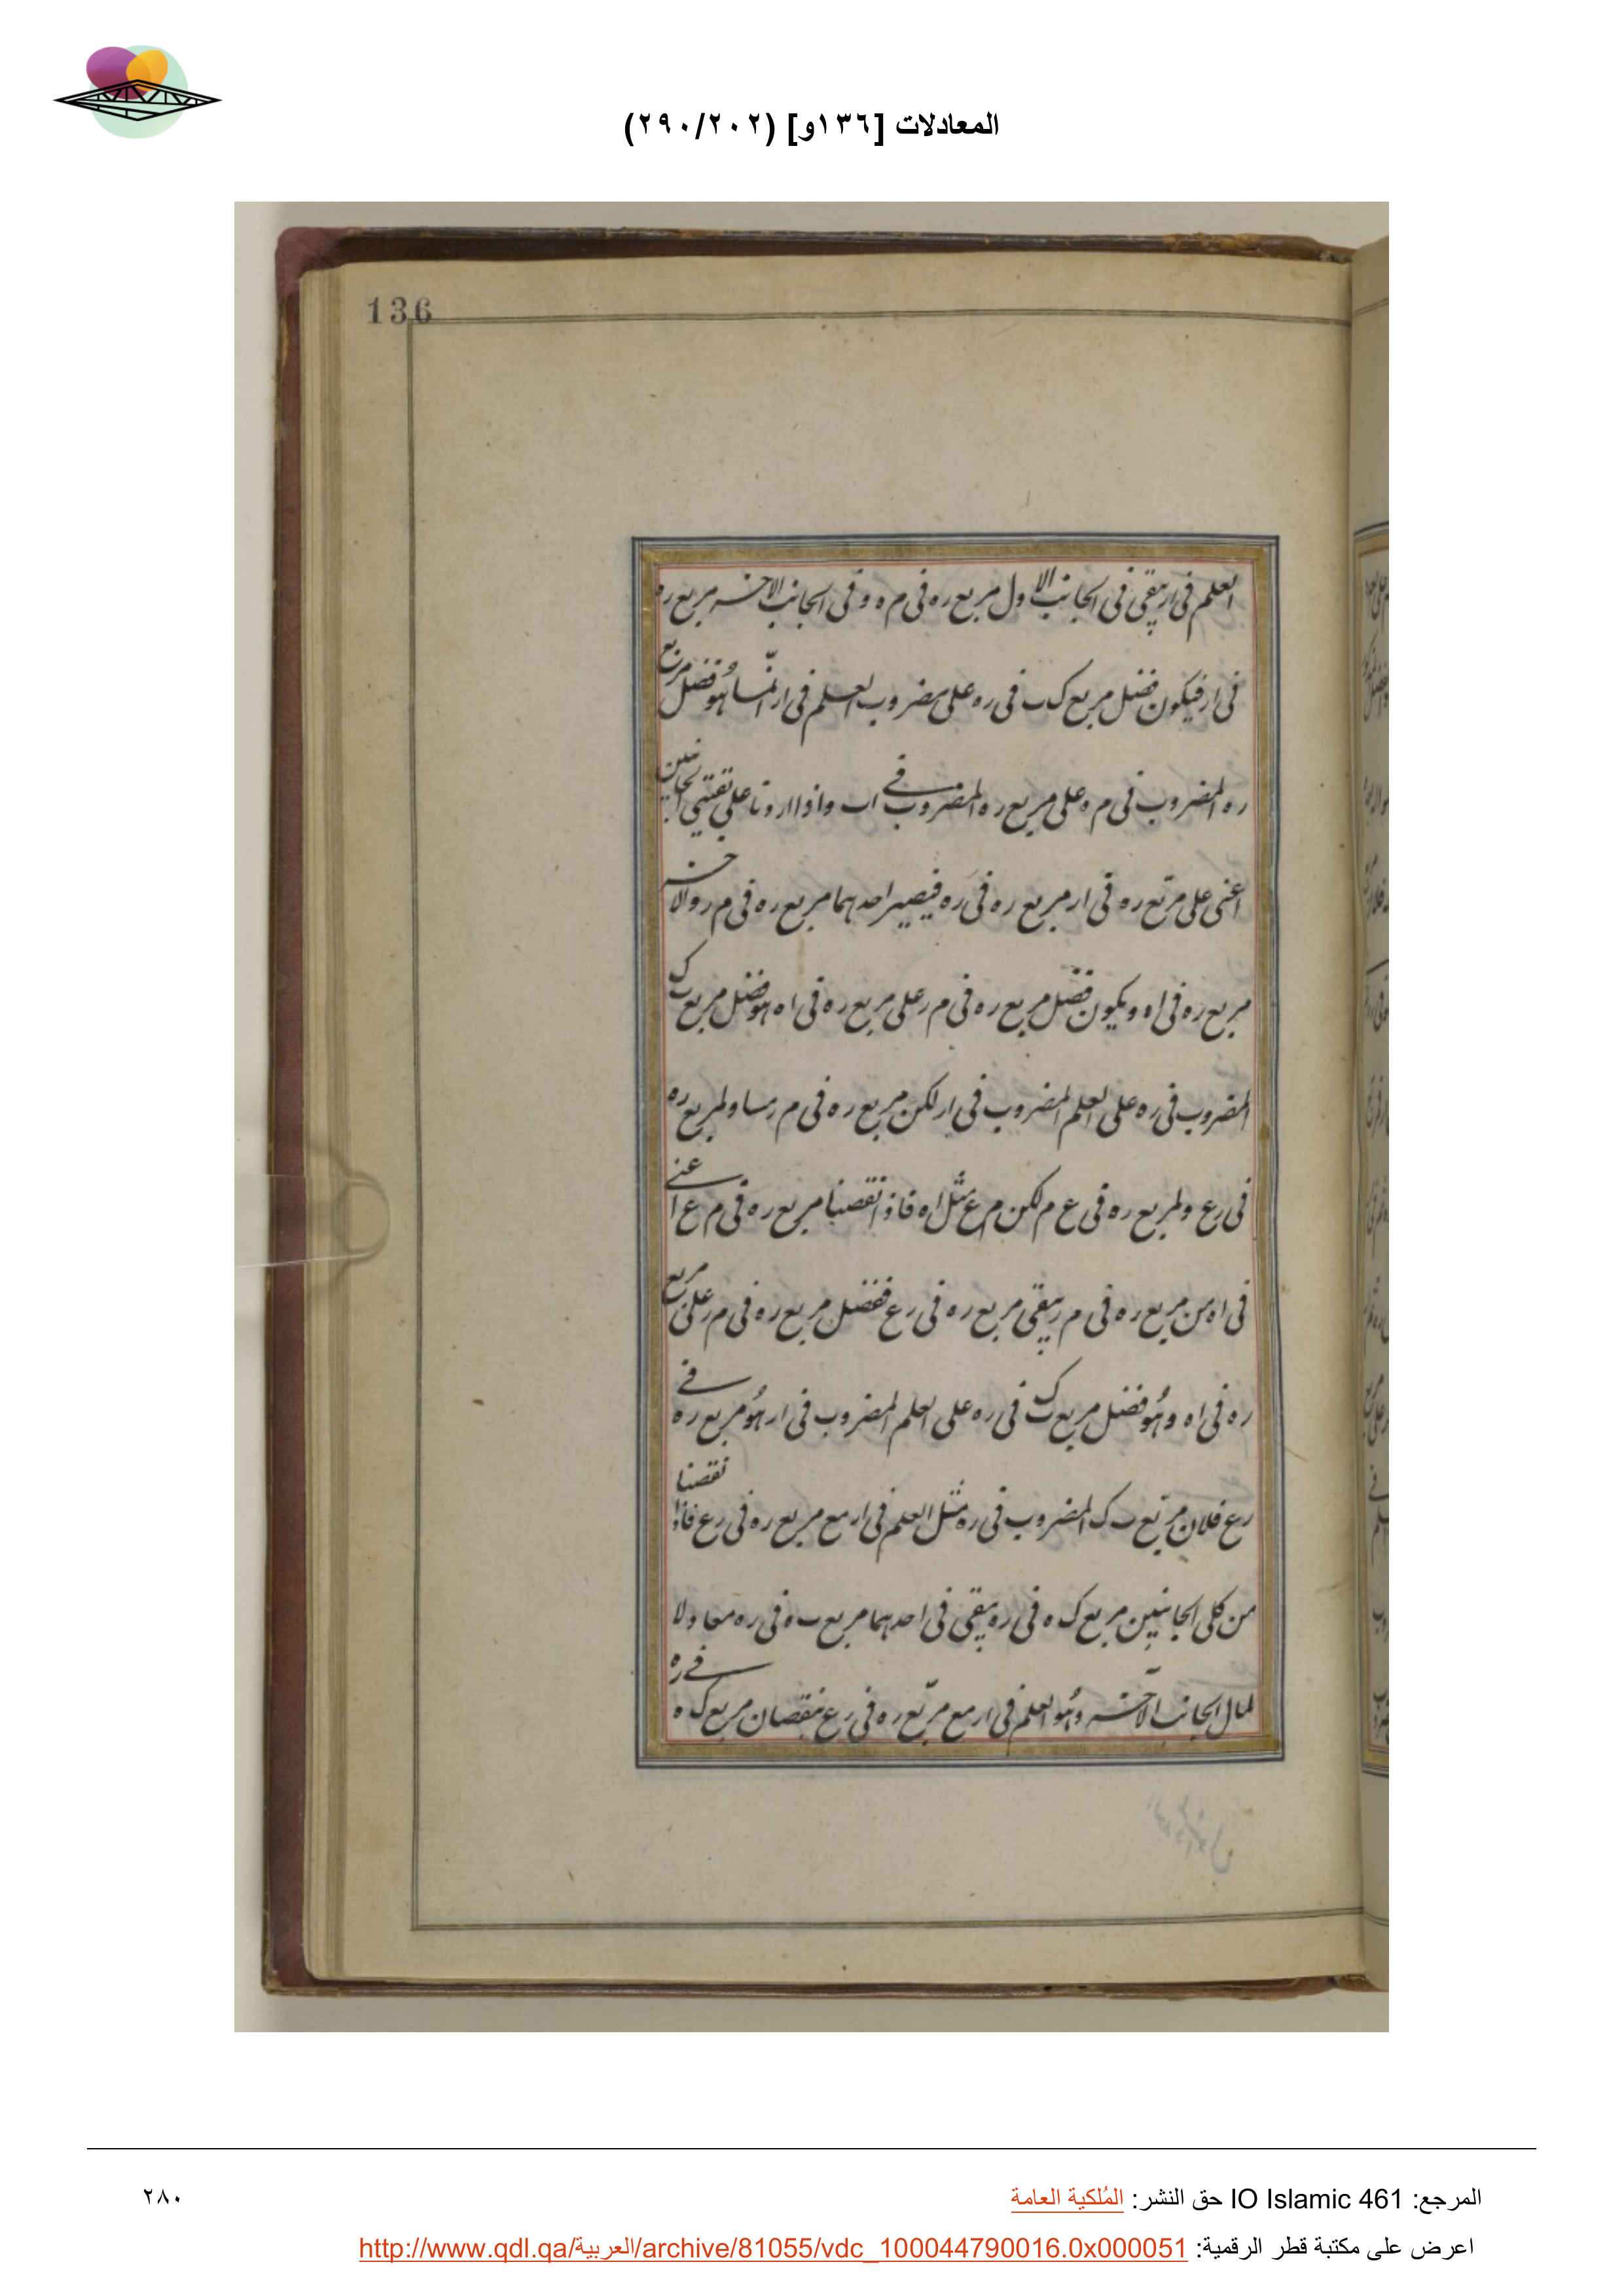 المعادلات [١٣٦و] (٢٩٠/٢٠٢)
136
العلم فى ار يبقى فى الجانب الاول مربع ره فى م ه و فى الجانب الاخر مربع ره
فى ار فيكون فضل مربع ك ب فى ره على مضروب العلم فى ار انما هو فضل مربع
ره المضروب فى م ه على مربع ره المضروب فى اب واذا اردنا على بقيتى الجانبين
اعنى على مربع ره فى ار مربع ره فى ره فيصير احدهما مربع ره فى م ر والاخر
مربع ره فى اه ويكون فضل مربع ره فى م ر على مربع ره فى اه هو فضل مربع ك ب
المضروب فى ره على العلم المضروب فى ار لكن مربع ره فى م ر مساو لمربع ره
فى رع ولمربع ره فى ع م لكن م ع مثل اه فاذا نقصنا مربع ره فى م ع اعنى
فى اه من مربع ره فى م ر يبقى مربع ره فى رع ففضل مربع ره فى م ر على مربع
ره فى اه وهو فضل مربع ك ب فى ره على العلم المضروب فى ار هو مربع ره فى
رع فلان مربع ب ك المضروب فى ره مثل العلم فى ار مع مربع ره فى رع فاذا نقصنا
من كلى الجانبين مربع ك ه فى ره يبقى فى احدهما مربع ب ه فى ره معادلا
لمال الجانب الآخر وهو العلم فى ار مع مربع ره فى رع بنقصان مربع ك ه فى ره
المرجع: IO Islamic 461 حق النشر: المُلكية العامة
٢٨٠
اعرض على مكتبة قطر الرقمية: http://www.qdl.qa/العربية/archive/81055/vdc_100044790016.0x000051